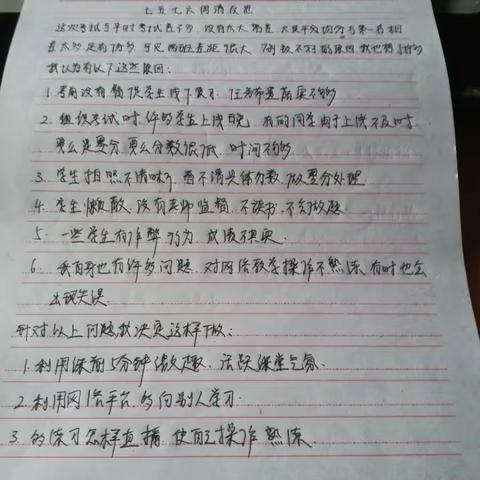 七五七六网清反思
这次考试与平时考试差不多，没有太大落差，只是平均分与第一名相
差太多，足有许多，可见两班差距很大。
我认为有以下这些原因：
1.考前没有督促学生线下复习，任务布置落实不够
2.组织考试时，有的学生上线晚，有的同学由于上线不及时，
要么是零分，要么分数很低，时间不够
3.学生拍照不清晰，看不清具体分数，做零分处理
4.学生懒散，没有老师监督，不读书，不勾做题
5.一些学生有作弊行为，成绩不真实
6.我自身也有许多问题，对网络教学操作不熟练，有时也会
出现失误
针对以上问题我决定这样做：
1.利用课前5分钟激趣，活跃课堂气氛
2.利用网络平台多向别人学习
3.多练习怎样直播，使自己操作熟练